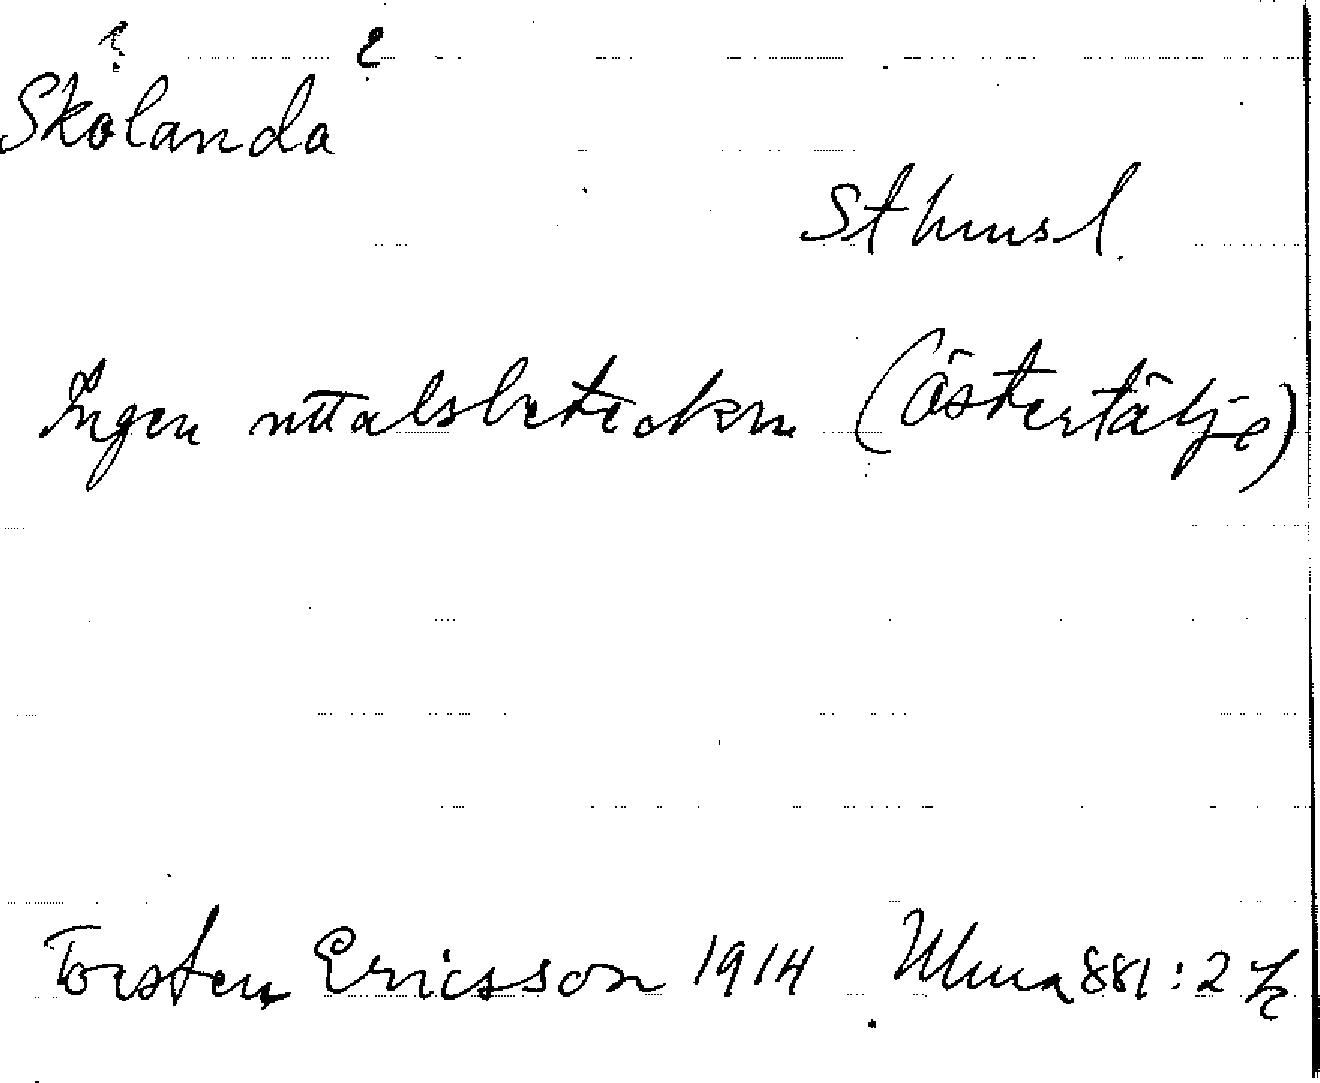 ? ?
Skålanda
Sthmsl.
Ingen uttalsbeteckn (Östertälje)
Torsten Ericsson 1914 Ulma 881:2